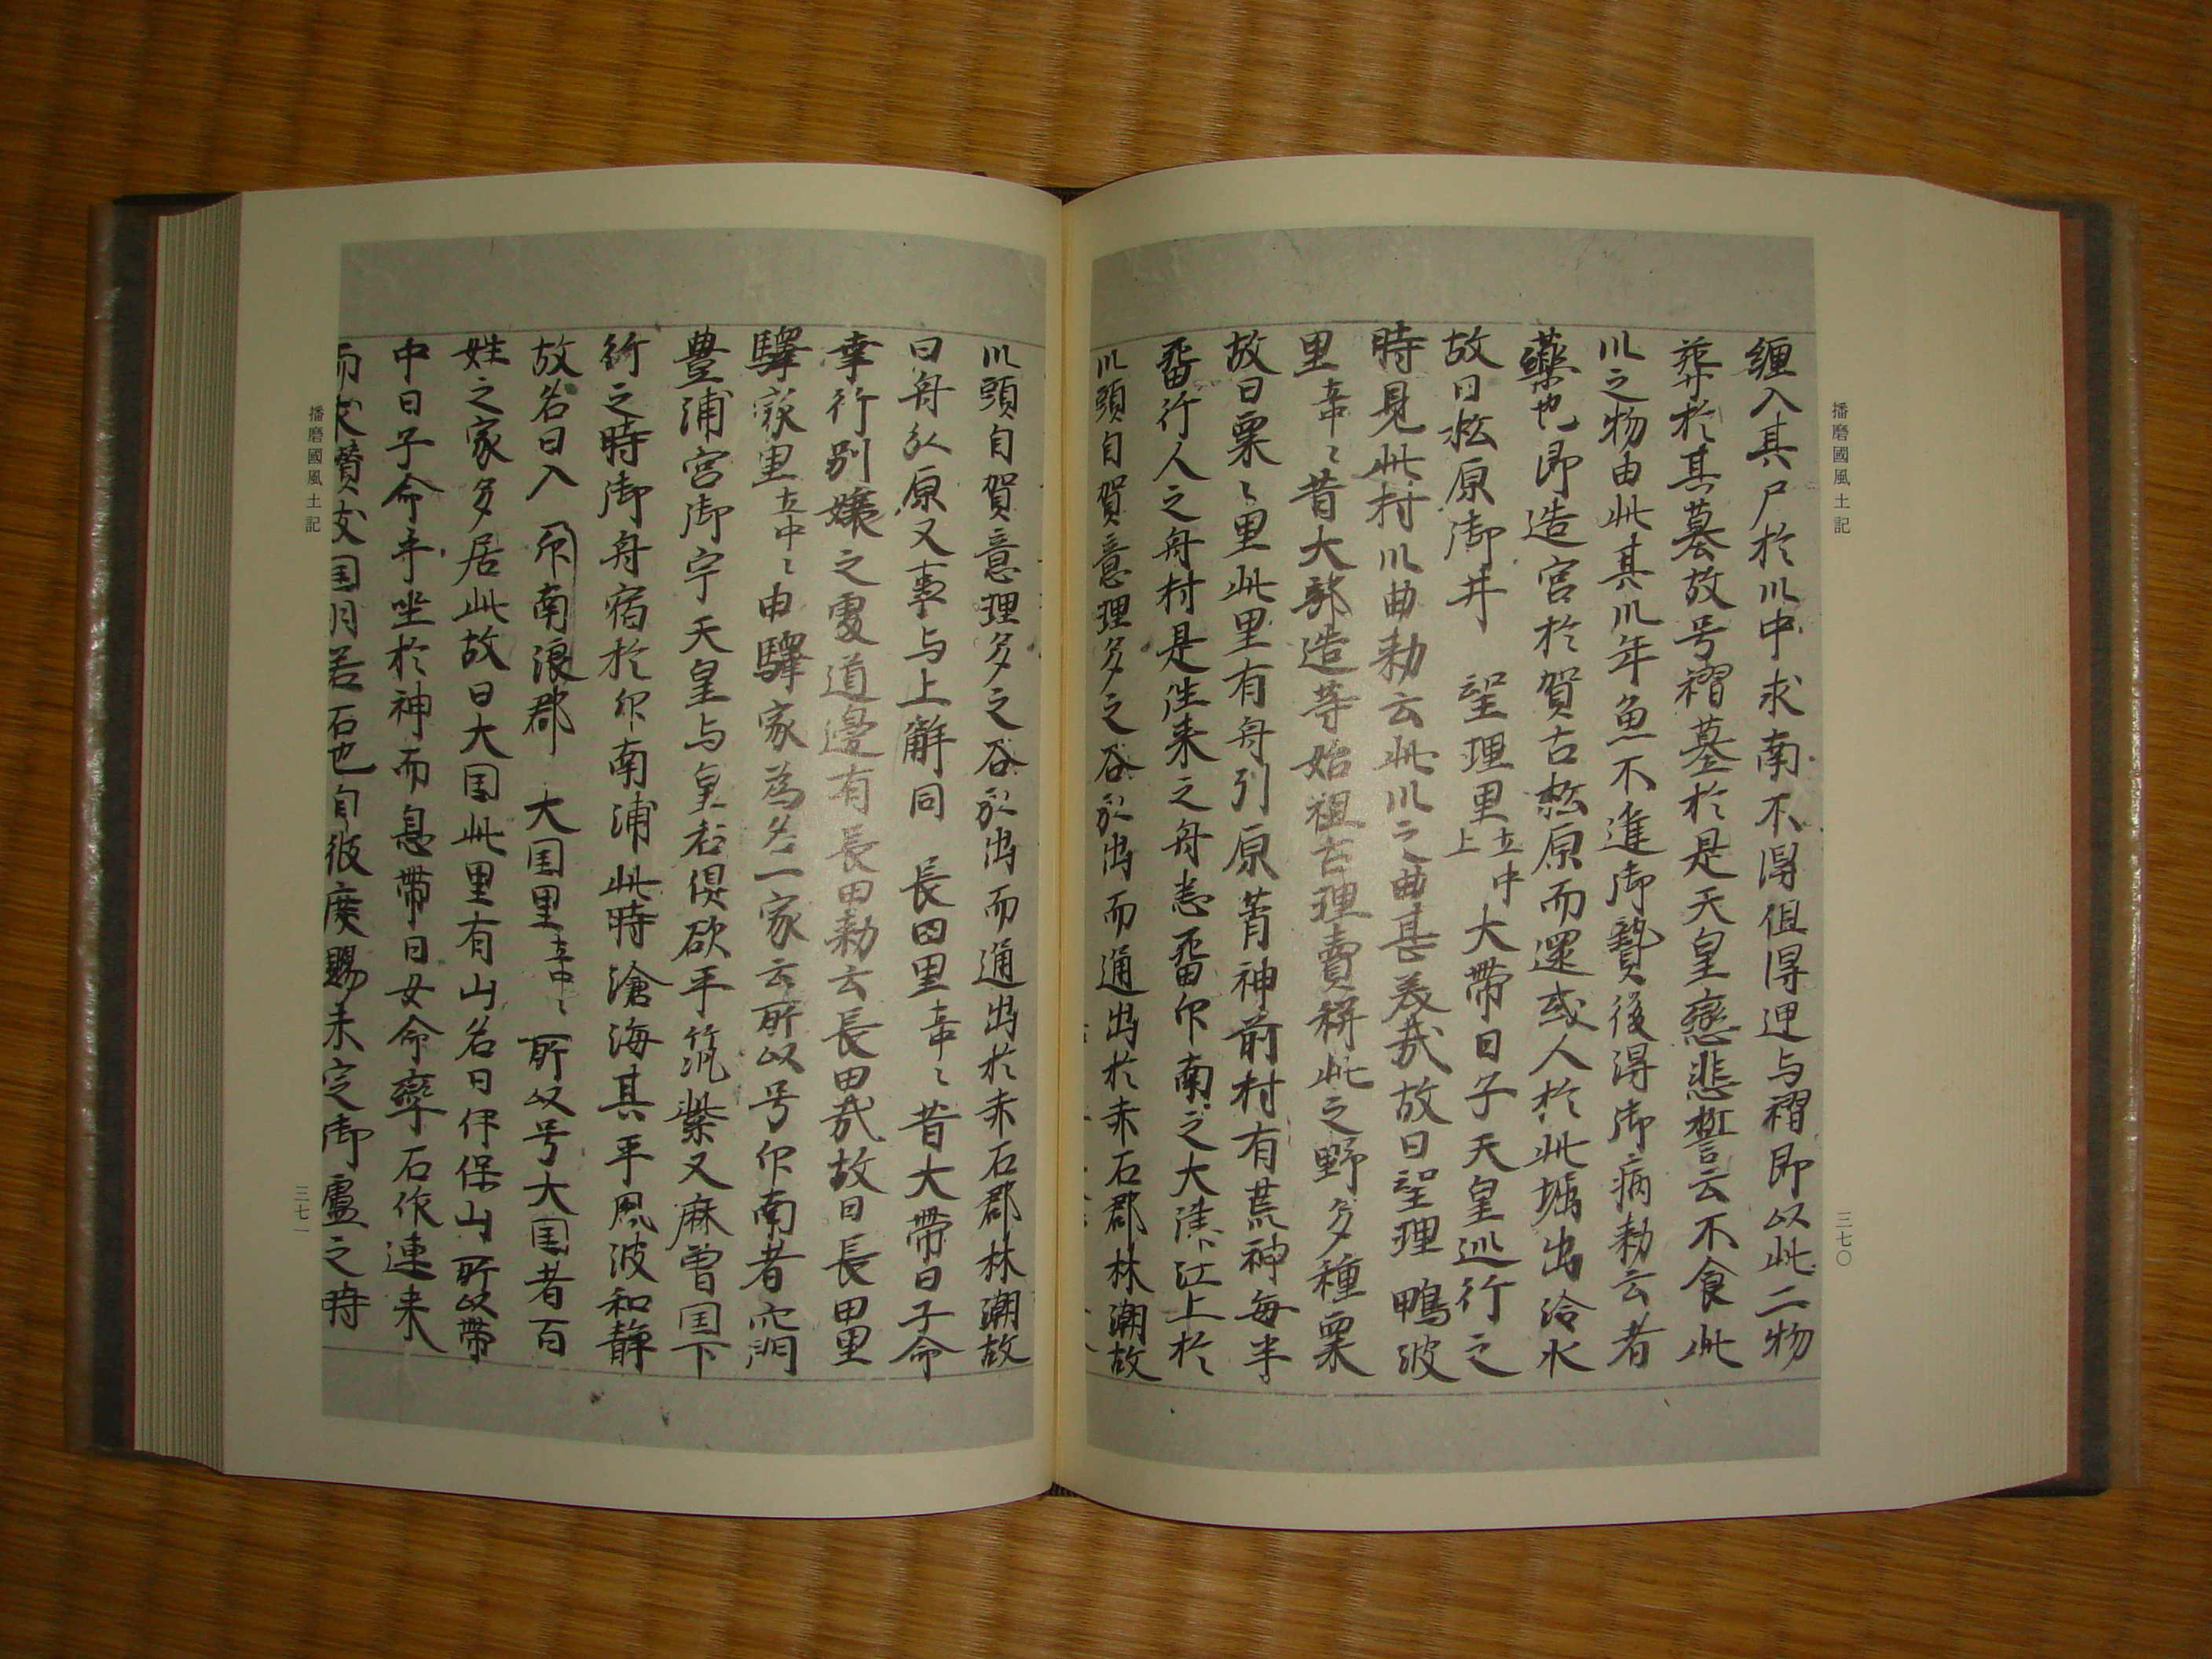 播磨國風土記
三七〇
纒入其尸於川中求南不得但得匣与褶即以此二物
葬於其墓故号褶墓於是天皇戀悲誓云不食此
川之物由此其川年魚不進御贄後得御病勅云者
藥也即造宮於賀古松原而還或人於此堀出冷水
故曰松原御井 望理里土中上大帯日子天皇巡行之
時見此村川曲勅云此川之曲甚美哉故曰望理 鴨波
里土中〻昔大部造等始祖古理賣耕此之野多種粟
故曰粟〻里此里有舟引原昔神前村有荒神毎半
留行人之舟村是徃来之舟悉留印南之大津江上於
川頭自賀意理多之谷引出而通出於赤石郡林潮故
川頭自賀意理多之谷引出而通出於赤石郡林潮故
曰舟引原又事与上解同 長田里土中〻昔大帯日子命
幸行別嬢之處道邊有長田勅云長田哉故曰長田里
驛家里土中〻由驛家為名一家云所以号印南者穴門
豊浦宮御宇天皇与皇后倶欲平筑紫久麻曽国下
行之時御舟宿於印南浦此時滄海其平風波和静
故名曰入 印南浪郡 大国里土中〻所以号大国者百
姓之家多居此故曰大国此里有山名曰伊保山所以帯
中日子命乎坐於神而息帯日女命率石作連来
而求讃伎国羽若石也自彼度賜未定御廬之時
播磨國風土記
三七一